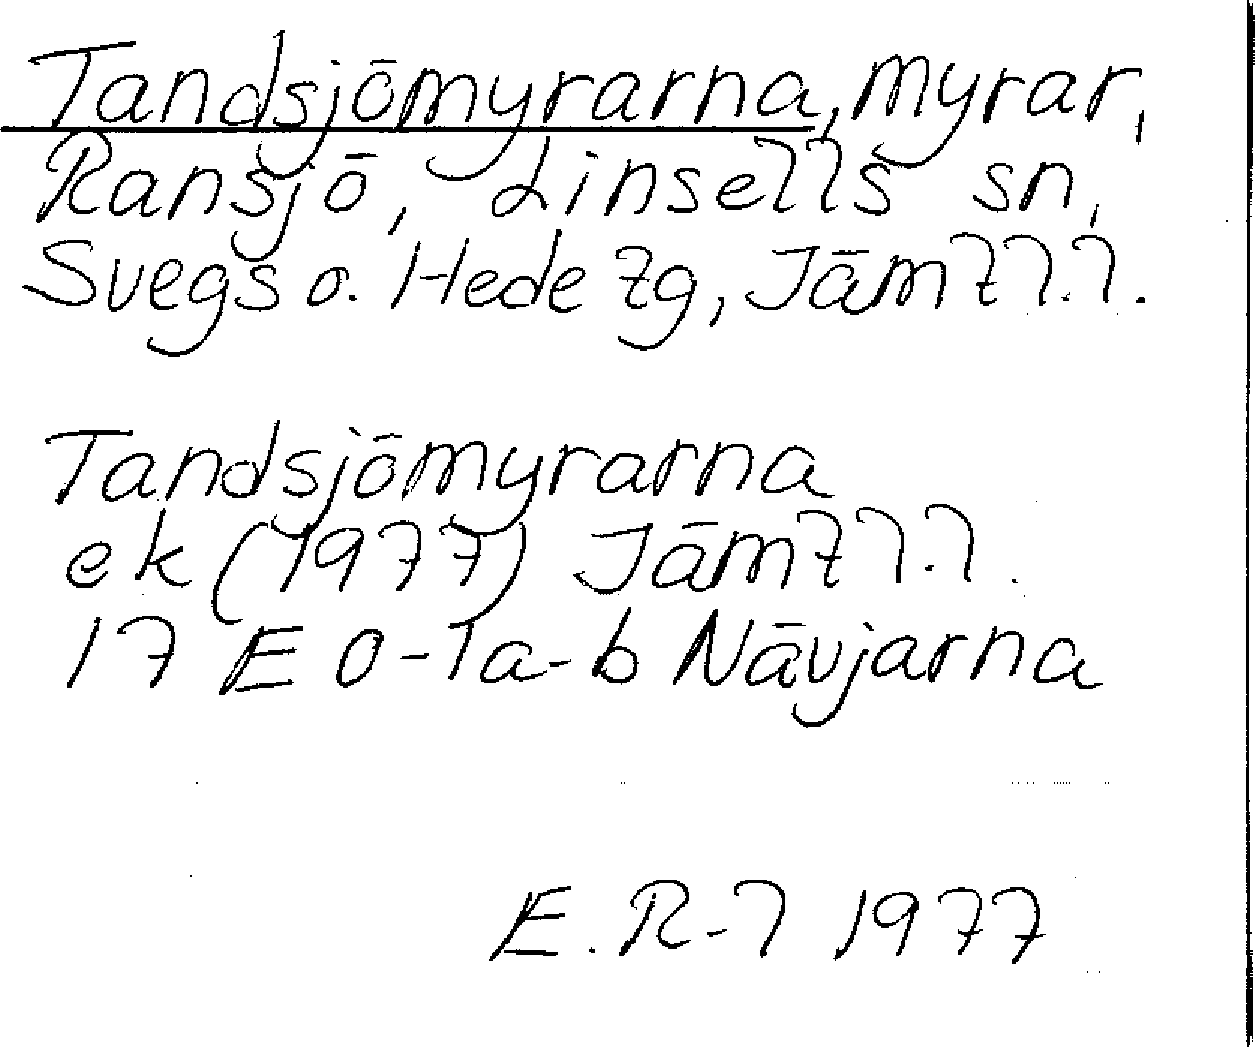 Tandsjömyrarna, myrar,
Ransjö, Linsells sn,
Svegs o. Hede tg, Jämtl.l.
Tandsjömyrarna
ek (1977) Jämtl.l.
17 E 0-1a-b Nävjarna
E. R-l 1977